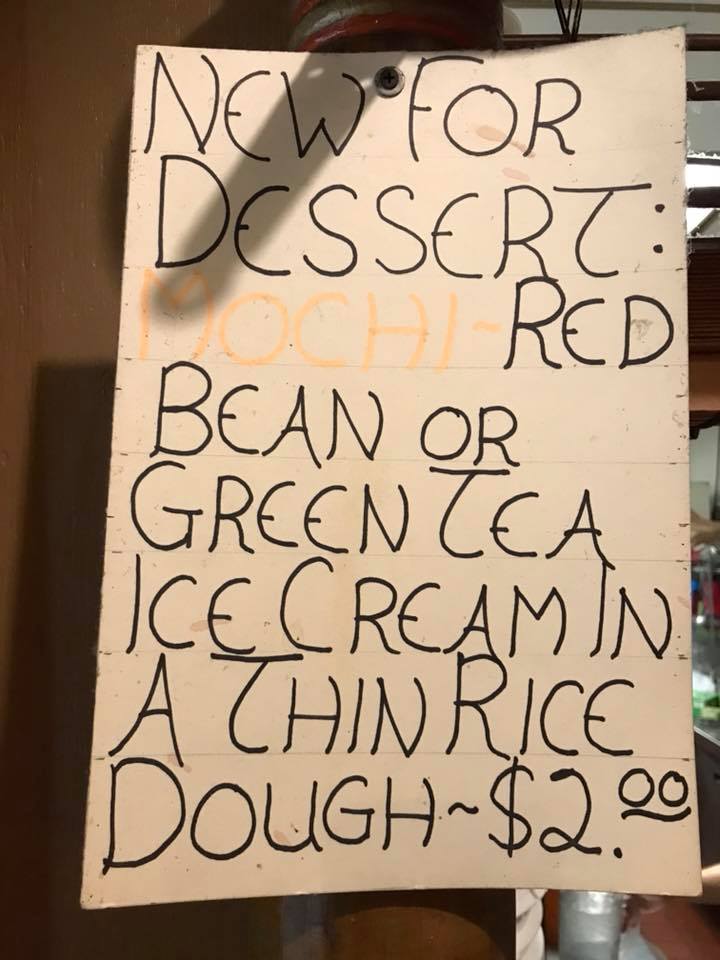 NEW FOR
DESSERT:
MOCHI~RED
BEAN OR
GREEN TEA
ICE CREAM IN
A THIN RICE
DOUGH~$2.00